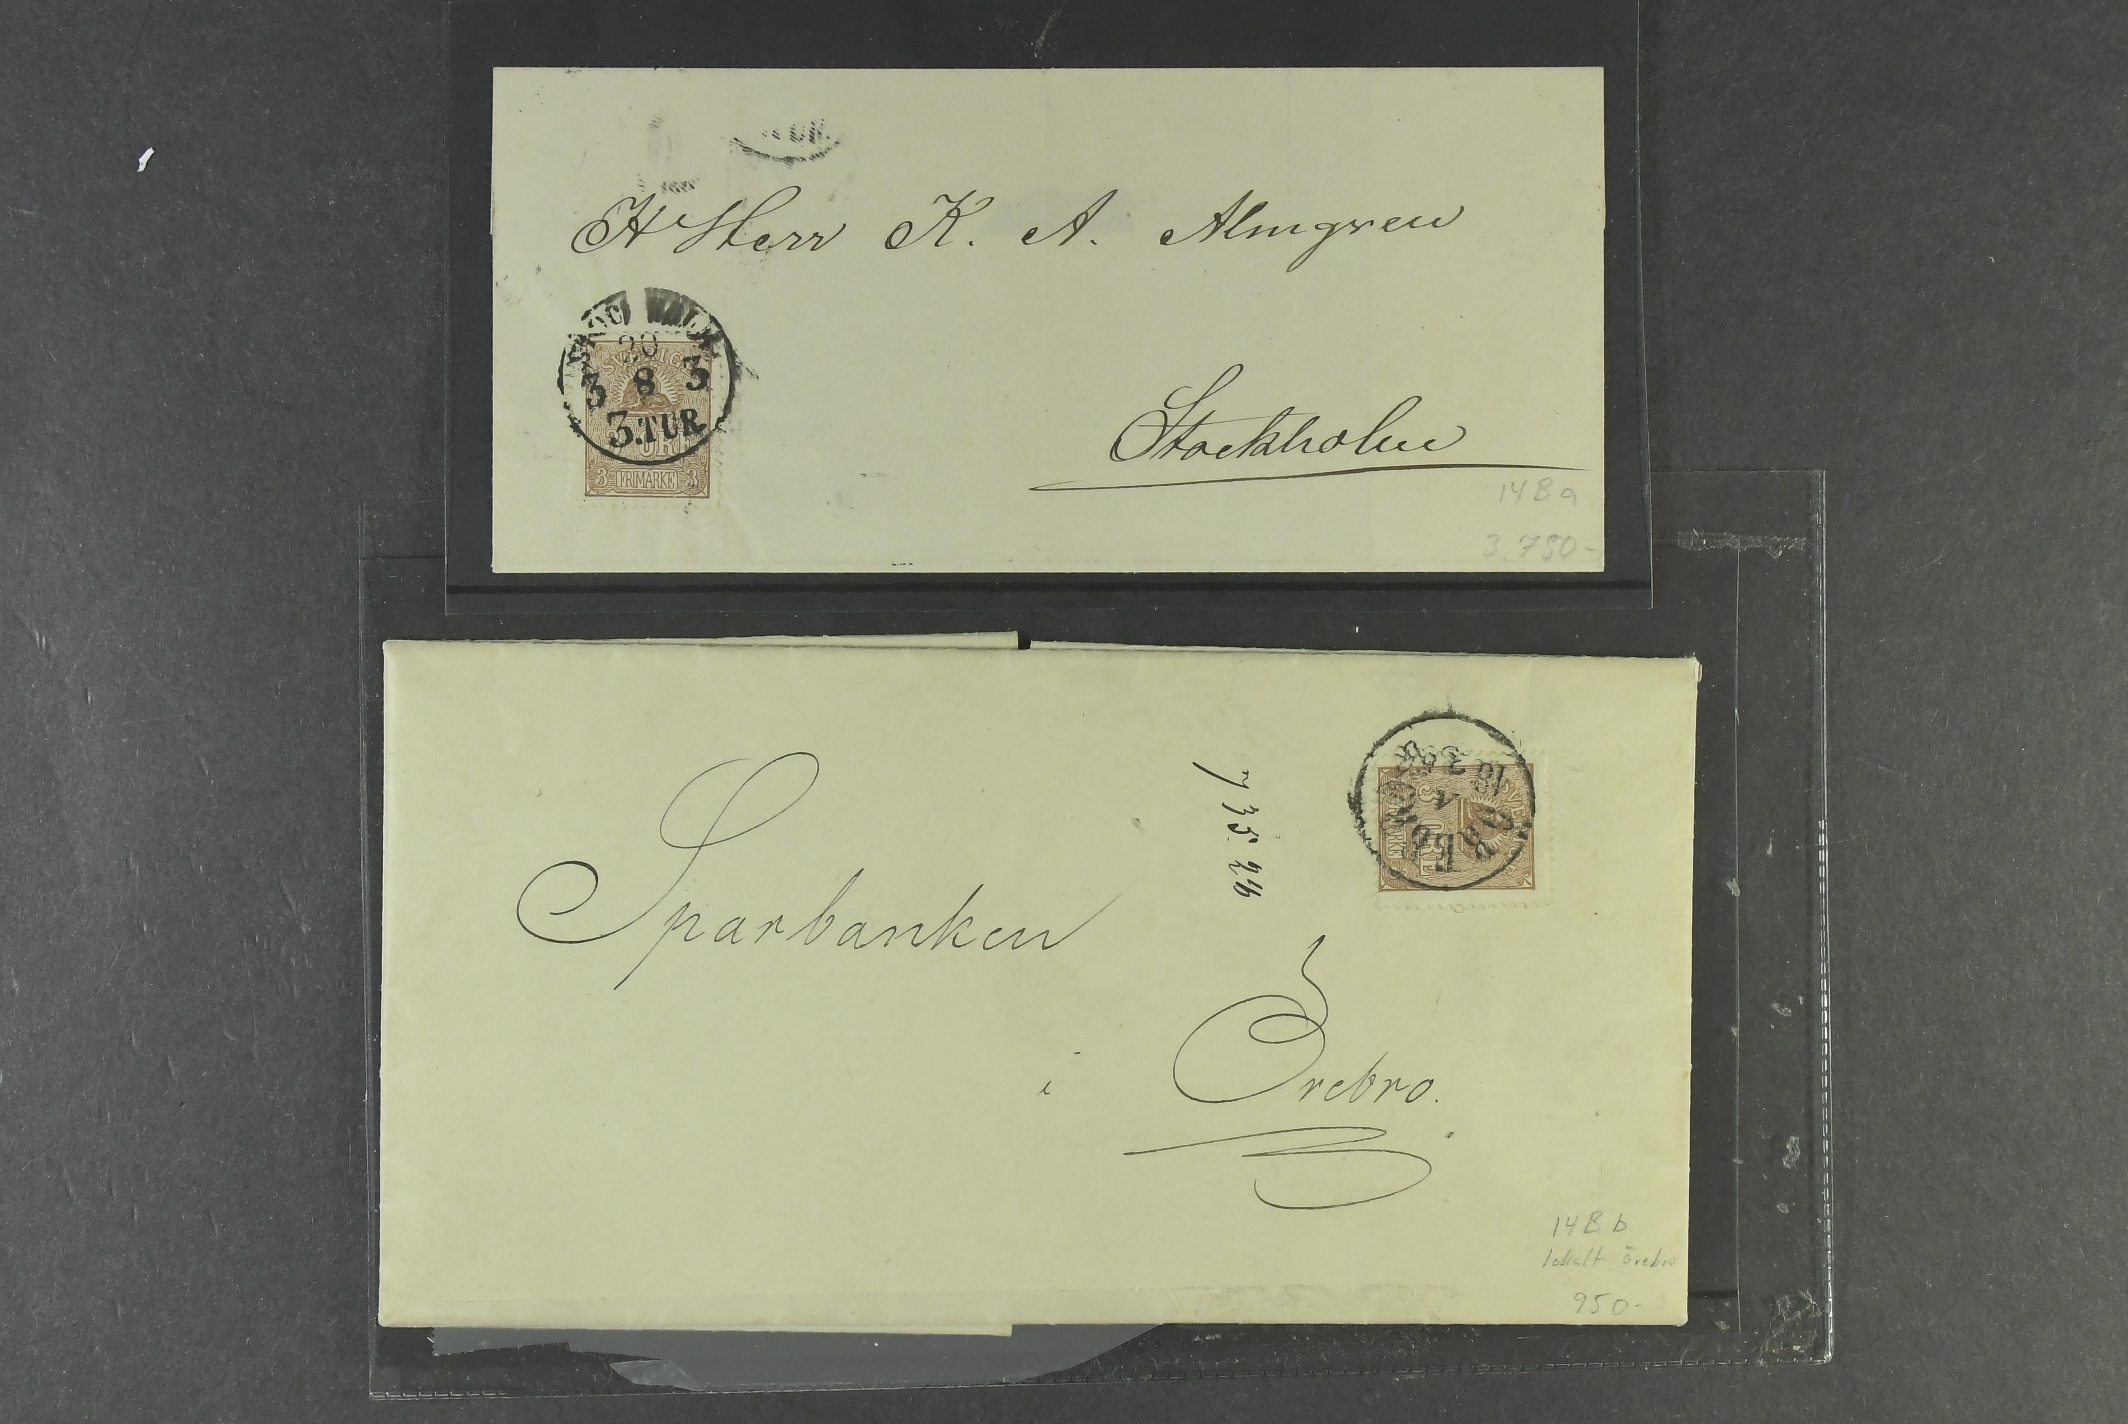 H Herr K. A. Almgren
20
3 8 3
3.TUR
SVERIGE
3 FRIMÄRKE 3
Stockholm
14Ba
3.750-
Sparbanken
7 35 24
ÖREBRO
i Örebro.
14Bb
lokalt Örebro
950-